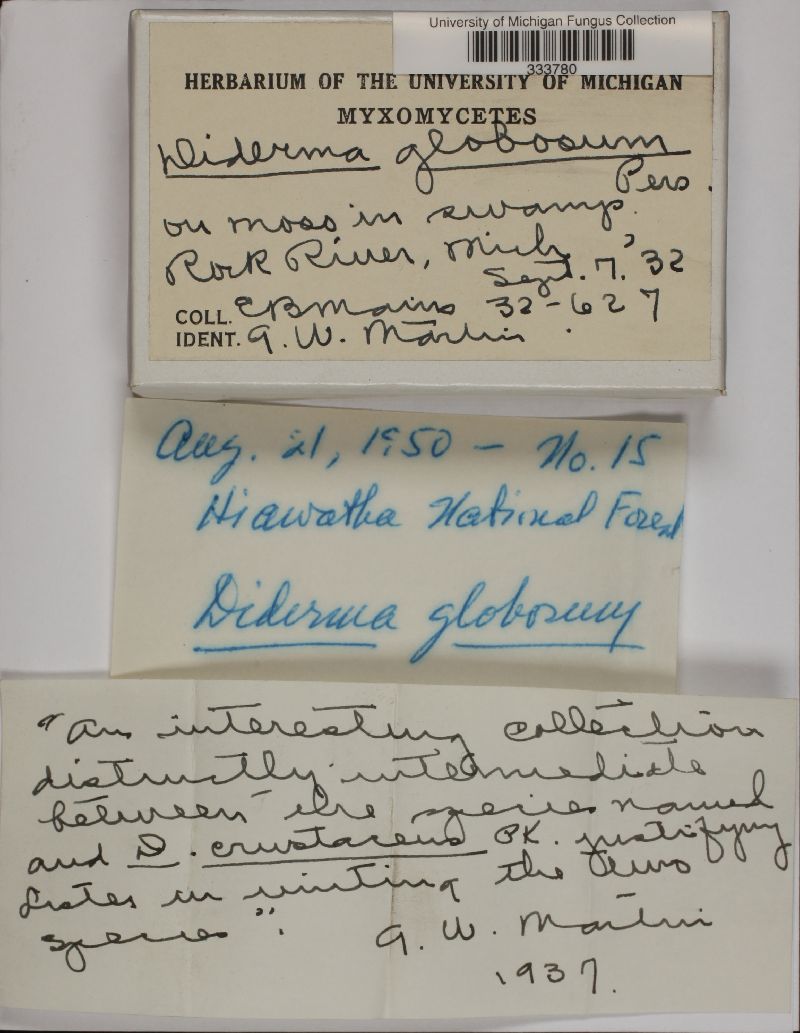 University of Michigan Fungus Collection
333780
HERBARIUM OF THE UNIVERSITY OF MICHIGAN
MYXOMYCETES
Diderma globosum
Pers.
on moss in swamp.
Rock River, Mich.
Sept. 7. '32
COLL. EBMains 32-627
IDENT. G. W. Martin
Aug. 21, 1950 - No. 15
Hiawatha National Forest
Diderma globosum
"An interesting collection
distinctly intermediate
between the species named
and D. crustaceum PK. justifying
Lister in uniting the two
species".
G. W. Martin
1937.